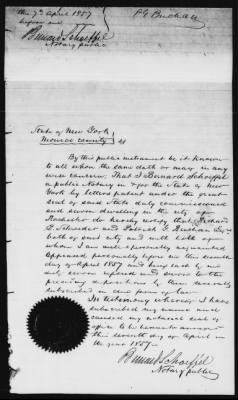 this 7th April 1857
before me
P G Buchan
Bernard Schoeffel
Notary public
State of New York
Monroe County } ss
By this public instrument be it known
to all whom the same doth or may in any
wise concern, That I Bernard Schoeffel
a public Notary in & for the State of New
York by letters patent under the great
seal of said State duly commissioned
and sworn dwelling in the city of
Rochester do hereby certify that
D. Schneider and Patrick G. Buchan
both of said city and with both
whom I am well personally acquainted
appeared personally before me this seventh
day of April 1857 and being each by me
duly sworn and swore to the
preceding depositions by them severally
subscribed in due form of law.
In testimony whereof I have
subscribed my name and
caused my notarial seal of
office to be hereunto annexed
this seventh day of April in
the year 1857.
Bernard Schoeffel
Notary public